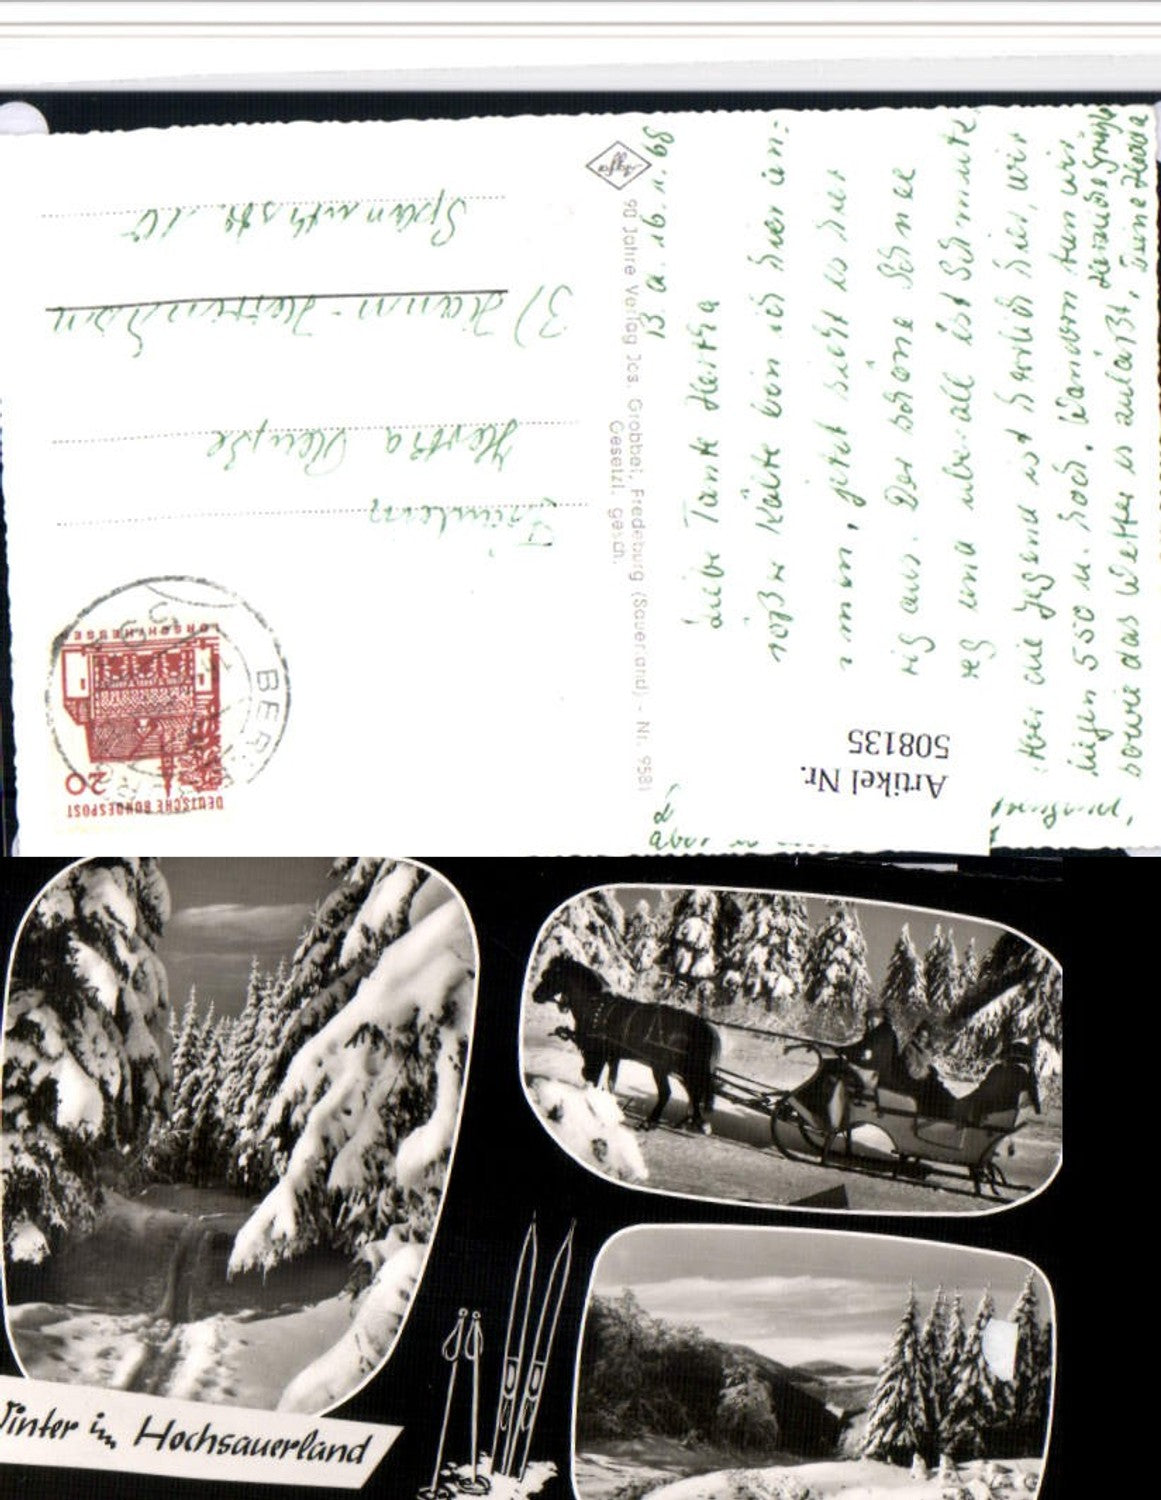 Fräulein
Hertha
3) Hann-
Spannuthstr. 10
DEUTSCHE BUNDESPOST
20
LORSCH/HESSEN
BER
Agfa
90 Jahre Verlag Jos. Grobbel, Fredeburg (Sauerland) - Nr. 9581
Gesetzl. gesch.
B. d. 16. 11. 68
Liebe Tante Hertha
Kälte bin ich hier an-
, jetzt sieht es hier
rig aus. Der schöne Schnee
weg und überall ist Schmutz
Aber die Gegend ist herrlich hier, wir
liegen 550 m. hoch. Wandern tun wir
sowie das Wetter es zuläßt,
Herzliche Grüße
Deine
Artikel Nr.
508135
Winter im Hochsauerland